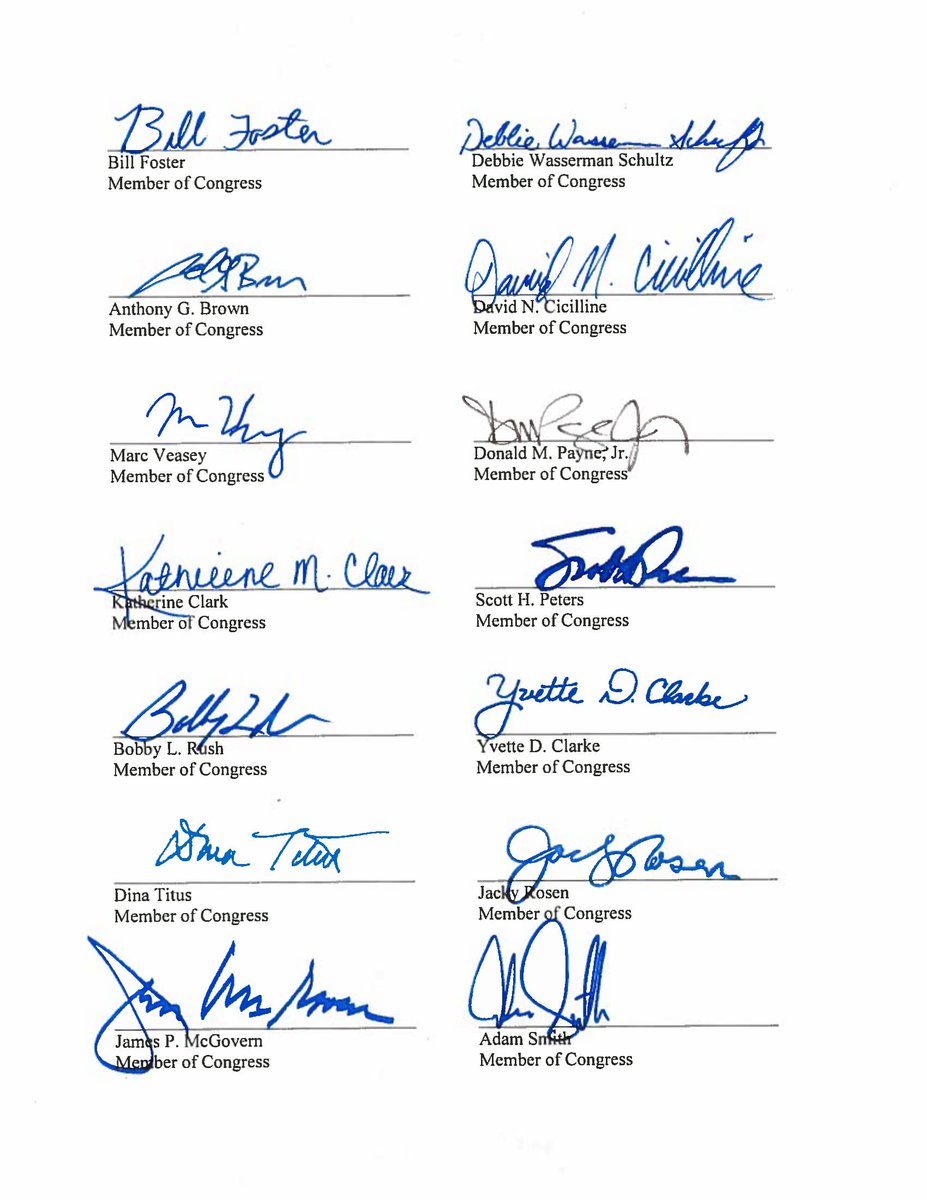 Bill Foster
Bill Foster
Member of Congress
Debbie Wasserman Schultz
Debbie Wasserman Schultz
Member of Congress
Anthony G. Brown
Member of Congress
David N. Cicilline
David N. Cicilline
Member of Congress
Marc Veasey
Member of Congress
Donald M. Payne, Jr.
Member of Congress
Katherine M. Clark
Katherine Clark
Member of Congress
Scott H. Peters
Member of Congress
Bobby L. Rush
Member of Congress
Yvette D. Clarke
Yvette D. Clarke
Member of Congress
Dina Titus
Dina Titus
Member of Congress
Jacky Rosen
Jacky Rosen
Member of Congress
James P. McGovern
Member of Congress
Adam Smith
Member of Congress